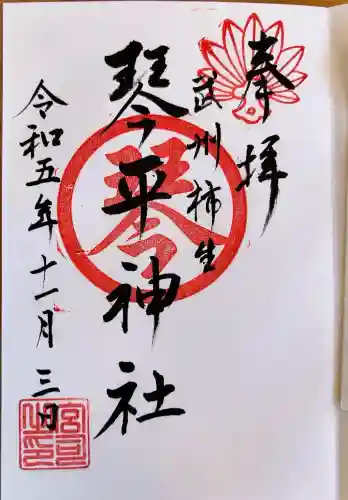 奉拝
武州柿生
琴平神社
令和五年十一月三日
琴